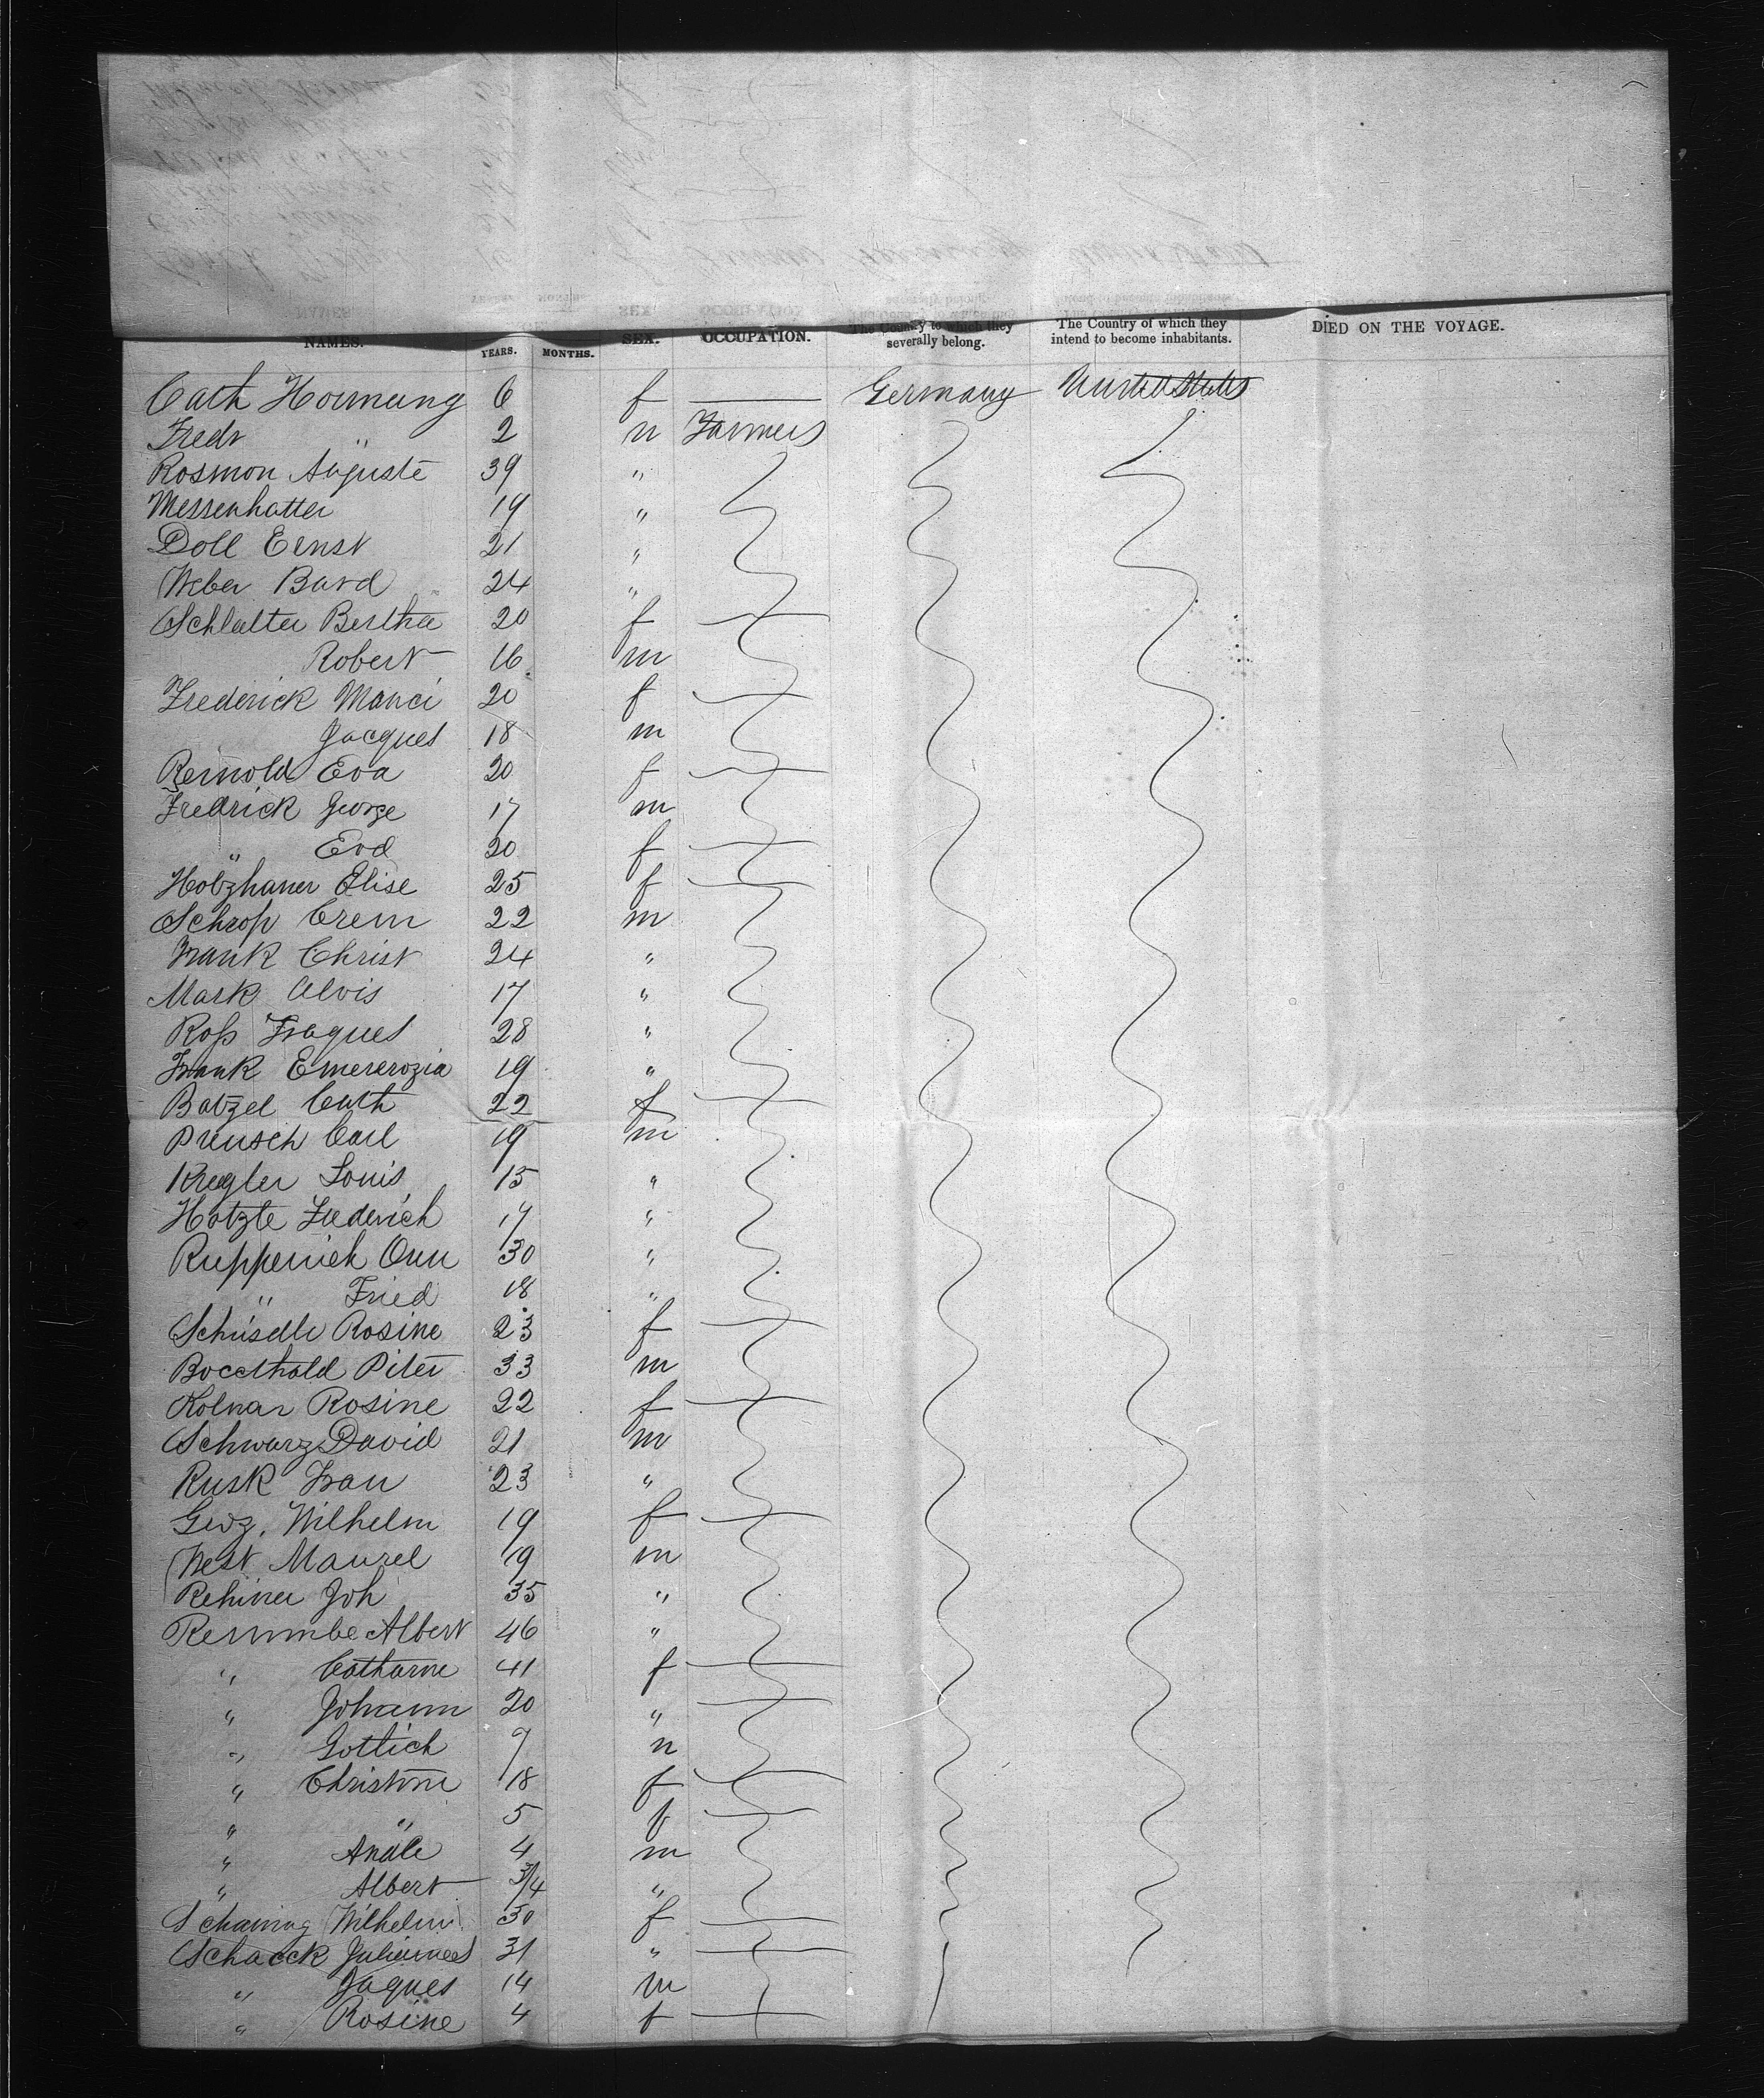 NAMES. YEARS. MONTHS. SEX. OCCUPATION. The Country to which they severally belong. The Country of which they intend to become inhabitants. DIED ON THE VOYAGE.
Cath Hornung 6 f — Germany United States
Fredr " 2 m Farmers
Rosmon Auguste 39 "
Messenhatter 19 "
Doll Ernst 21 "
Weber Bard 24 "
Schlatter Bertha 20 f —
Robert 16 m
Frederick Manci 20 f —
Jacques 18 m
Reinold Eva 20 f —
Fredrick George 17 m
" Eva 20 f —
Holzhauer Elise 25 f —
Schrop Crem 22 m
Frank Christ 24 "
Mark Alvis 17 "
Roß Jraques 28 "
Frank Emererozia 19 "
Batzel Cath 22 f —
Preusch Carl 19 m
Kregler Louis 15 "
Hotzte Frederich 17 "
Rupperich Onu 30 "
" Fried 18 "
Schüselle Rosine 23 f —
Bocethold Peter 33 m
Kolnar Rosine 22 f —
Schwarz David 21 m
Rusk Fran 23 "
Geoz. Wilhelm 19 f —
West Maurel 19 m
Rehiner Joh 35 "
Rerumbe Albert 46 "
" Catharne 41 f —
" Johann 20 " —
" Gotlich 7 m
" Christine 18 f —
" " 5 f —
" Anäle 4 m
" Albert 3/4 "
Schaining Wilhelm 30 f —
Schaeck Julianees 31 " —
" Jaques 14 m
" Rosine 4 f —